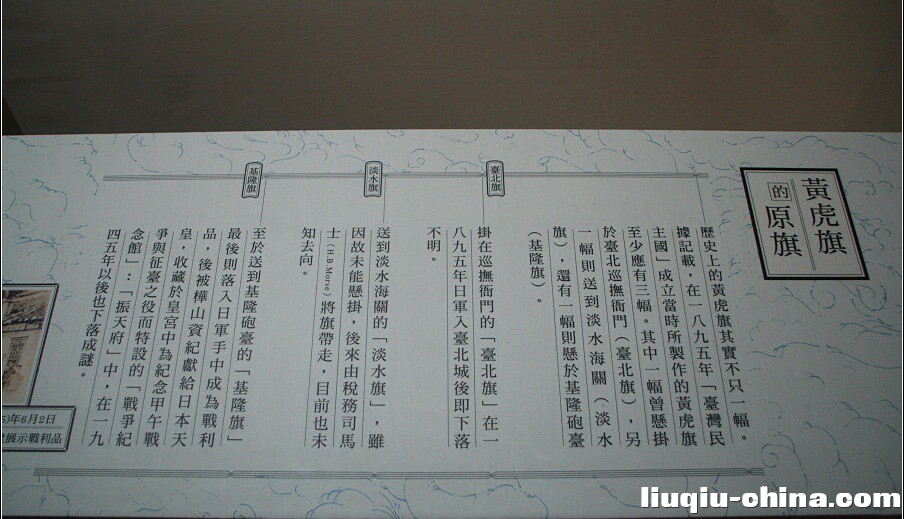 黃虎旗
的原旗
歷史上的黃虎旗其實不只一幅。
據記載，在一八九五年「臺灣民
主國」成立當時所製作的黃虎旗
至少應有三幅。其中一幅曾懸掛
於臺北巡撫衙門（臺北旗），另
一幅則送到淡水海關（淡水
旗），還有一幅則懸於基隆砲臺
（基隆旗）。
臺北旗
掛在巡撫衙門的「臺北旗」在一
八九五年日軍入臺北城後即下落
不明。
淡水旗
送到淡水海關的「淡水旗」，雖
因故未能懸掛，後來由稅務司馬
士（H.B Morse）將旗帶走，目前也未
知去向。
基隆旗
至於送到基隆砲臺的「基隆旗」
最後則落入日軍手中成為戰利
品，後被樺山資紀獻給日本天
皇，收藏於皇宮中為紀念甲午戰
爭與征臺之役而特設的「戰爭紀
念館」：「振天府」中，在一九
四五年以後也下落成謎。
年6月2日
展示戰利品
liuqiu-china.com